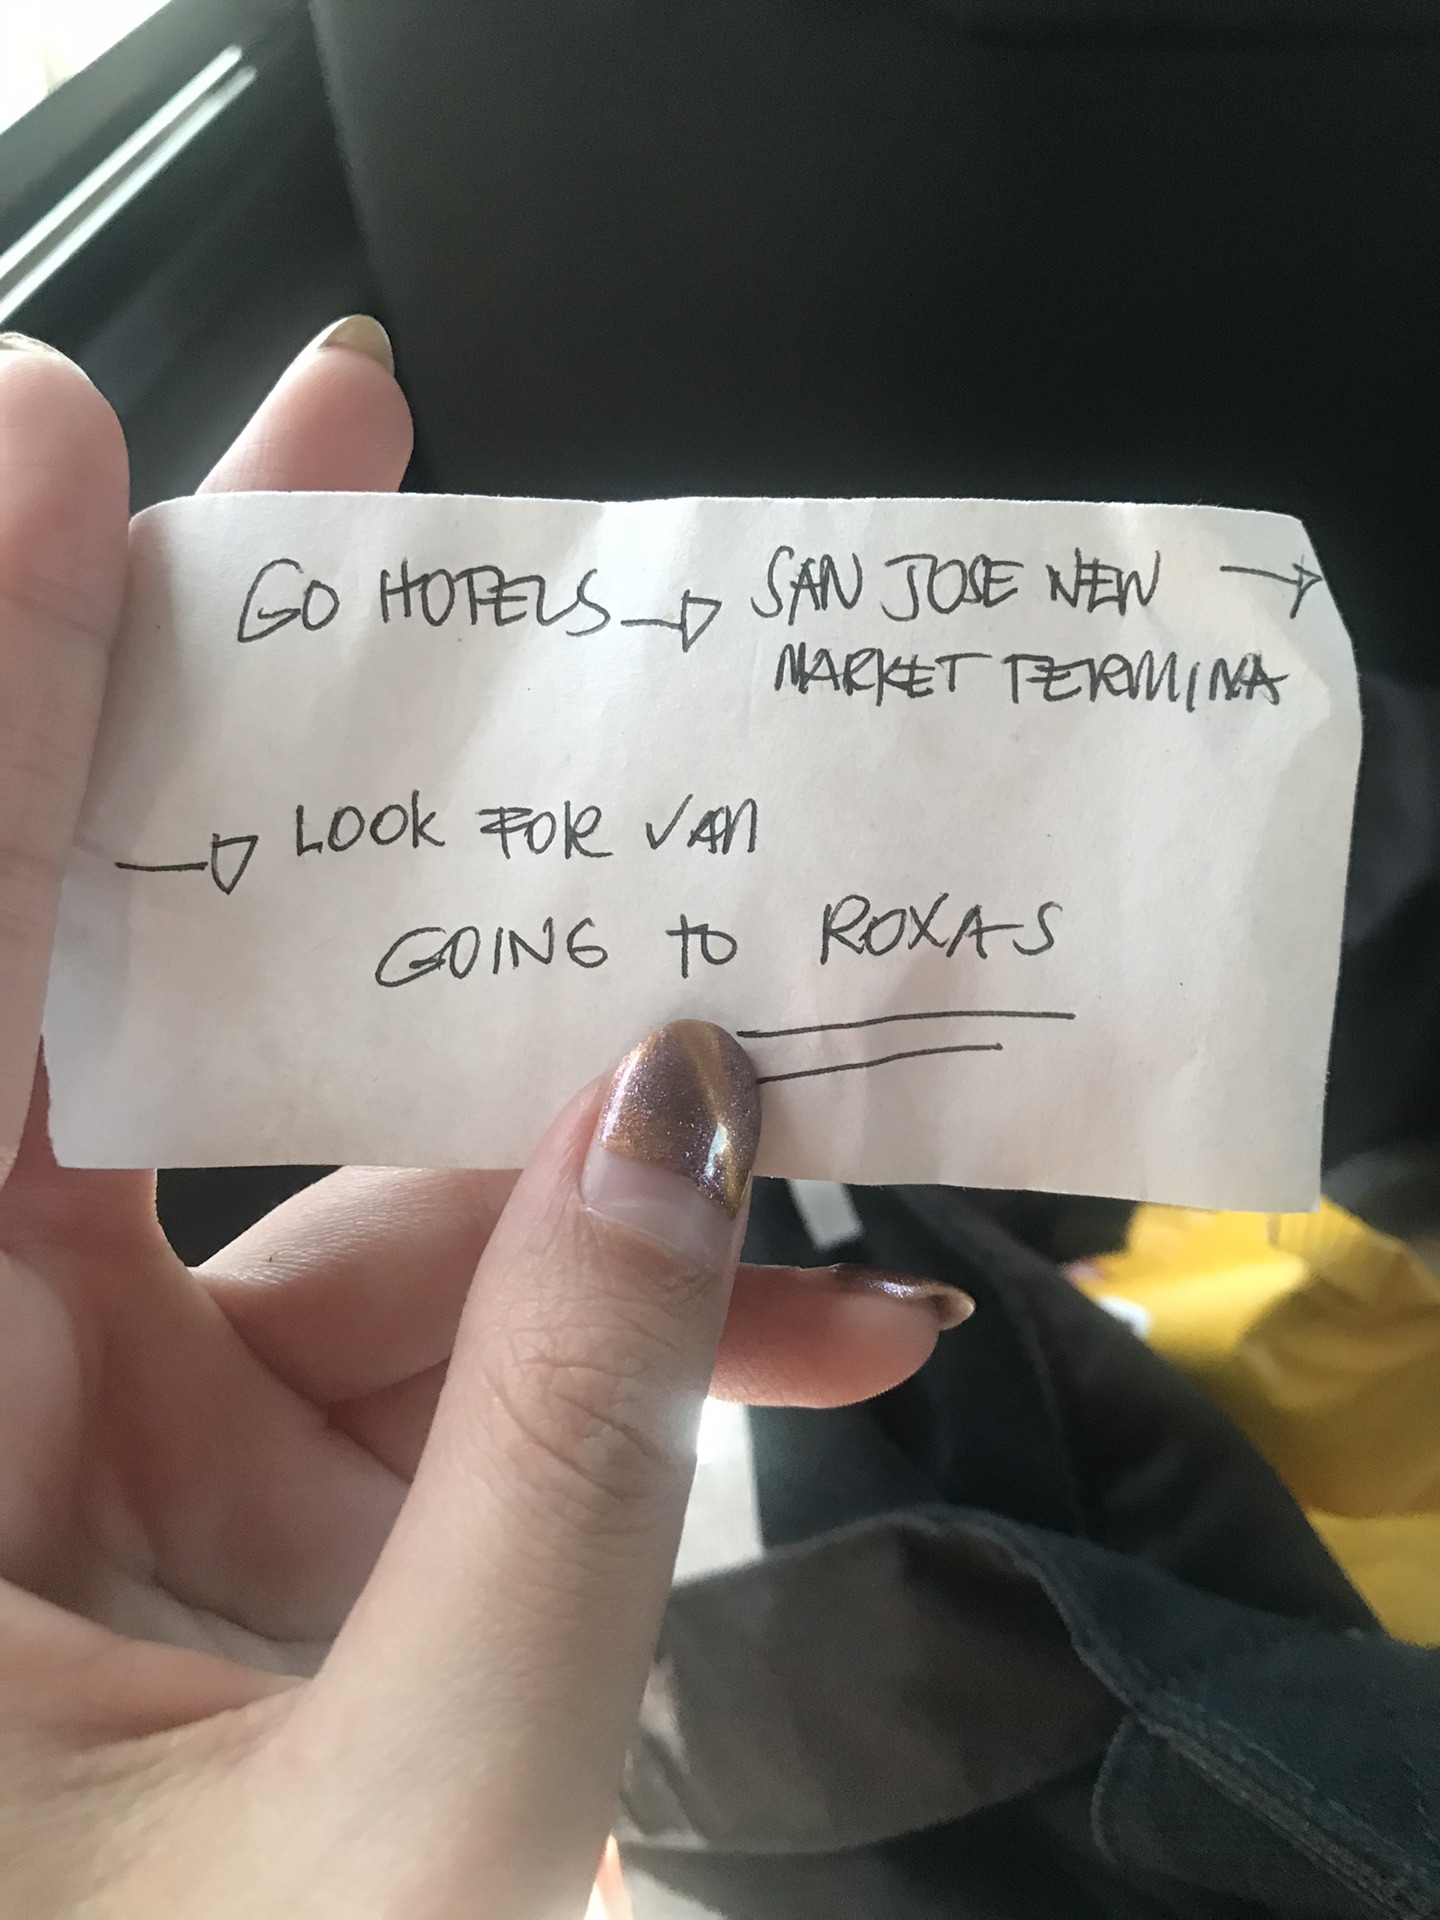 GO HOTELS → SAN JOSE NEW →
MARKET TERMINA
→ LOOK FOR VAN
GOING to ROXAS